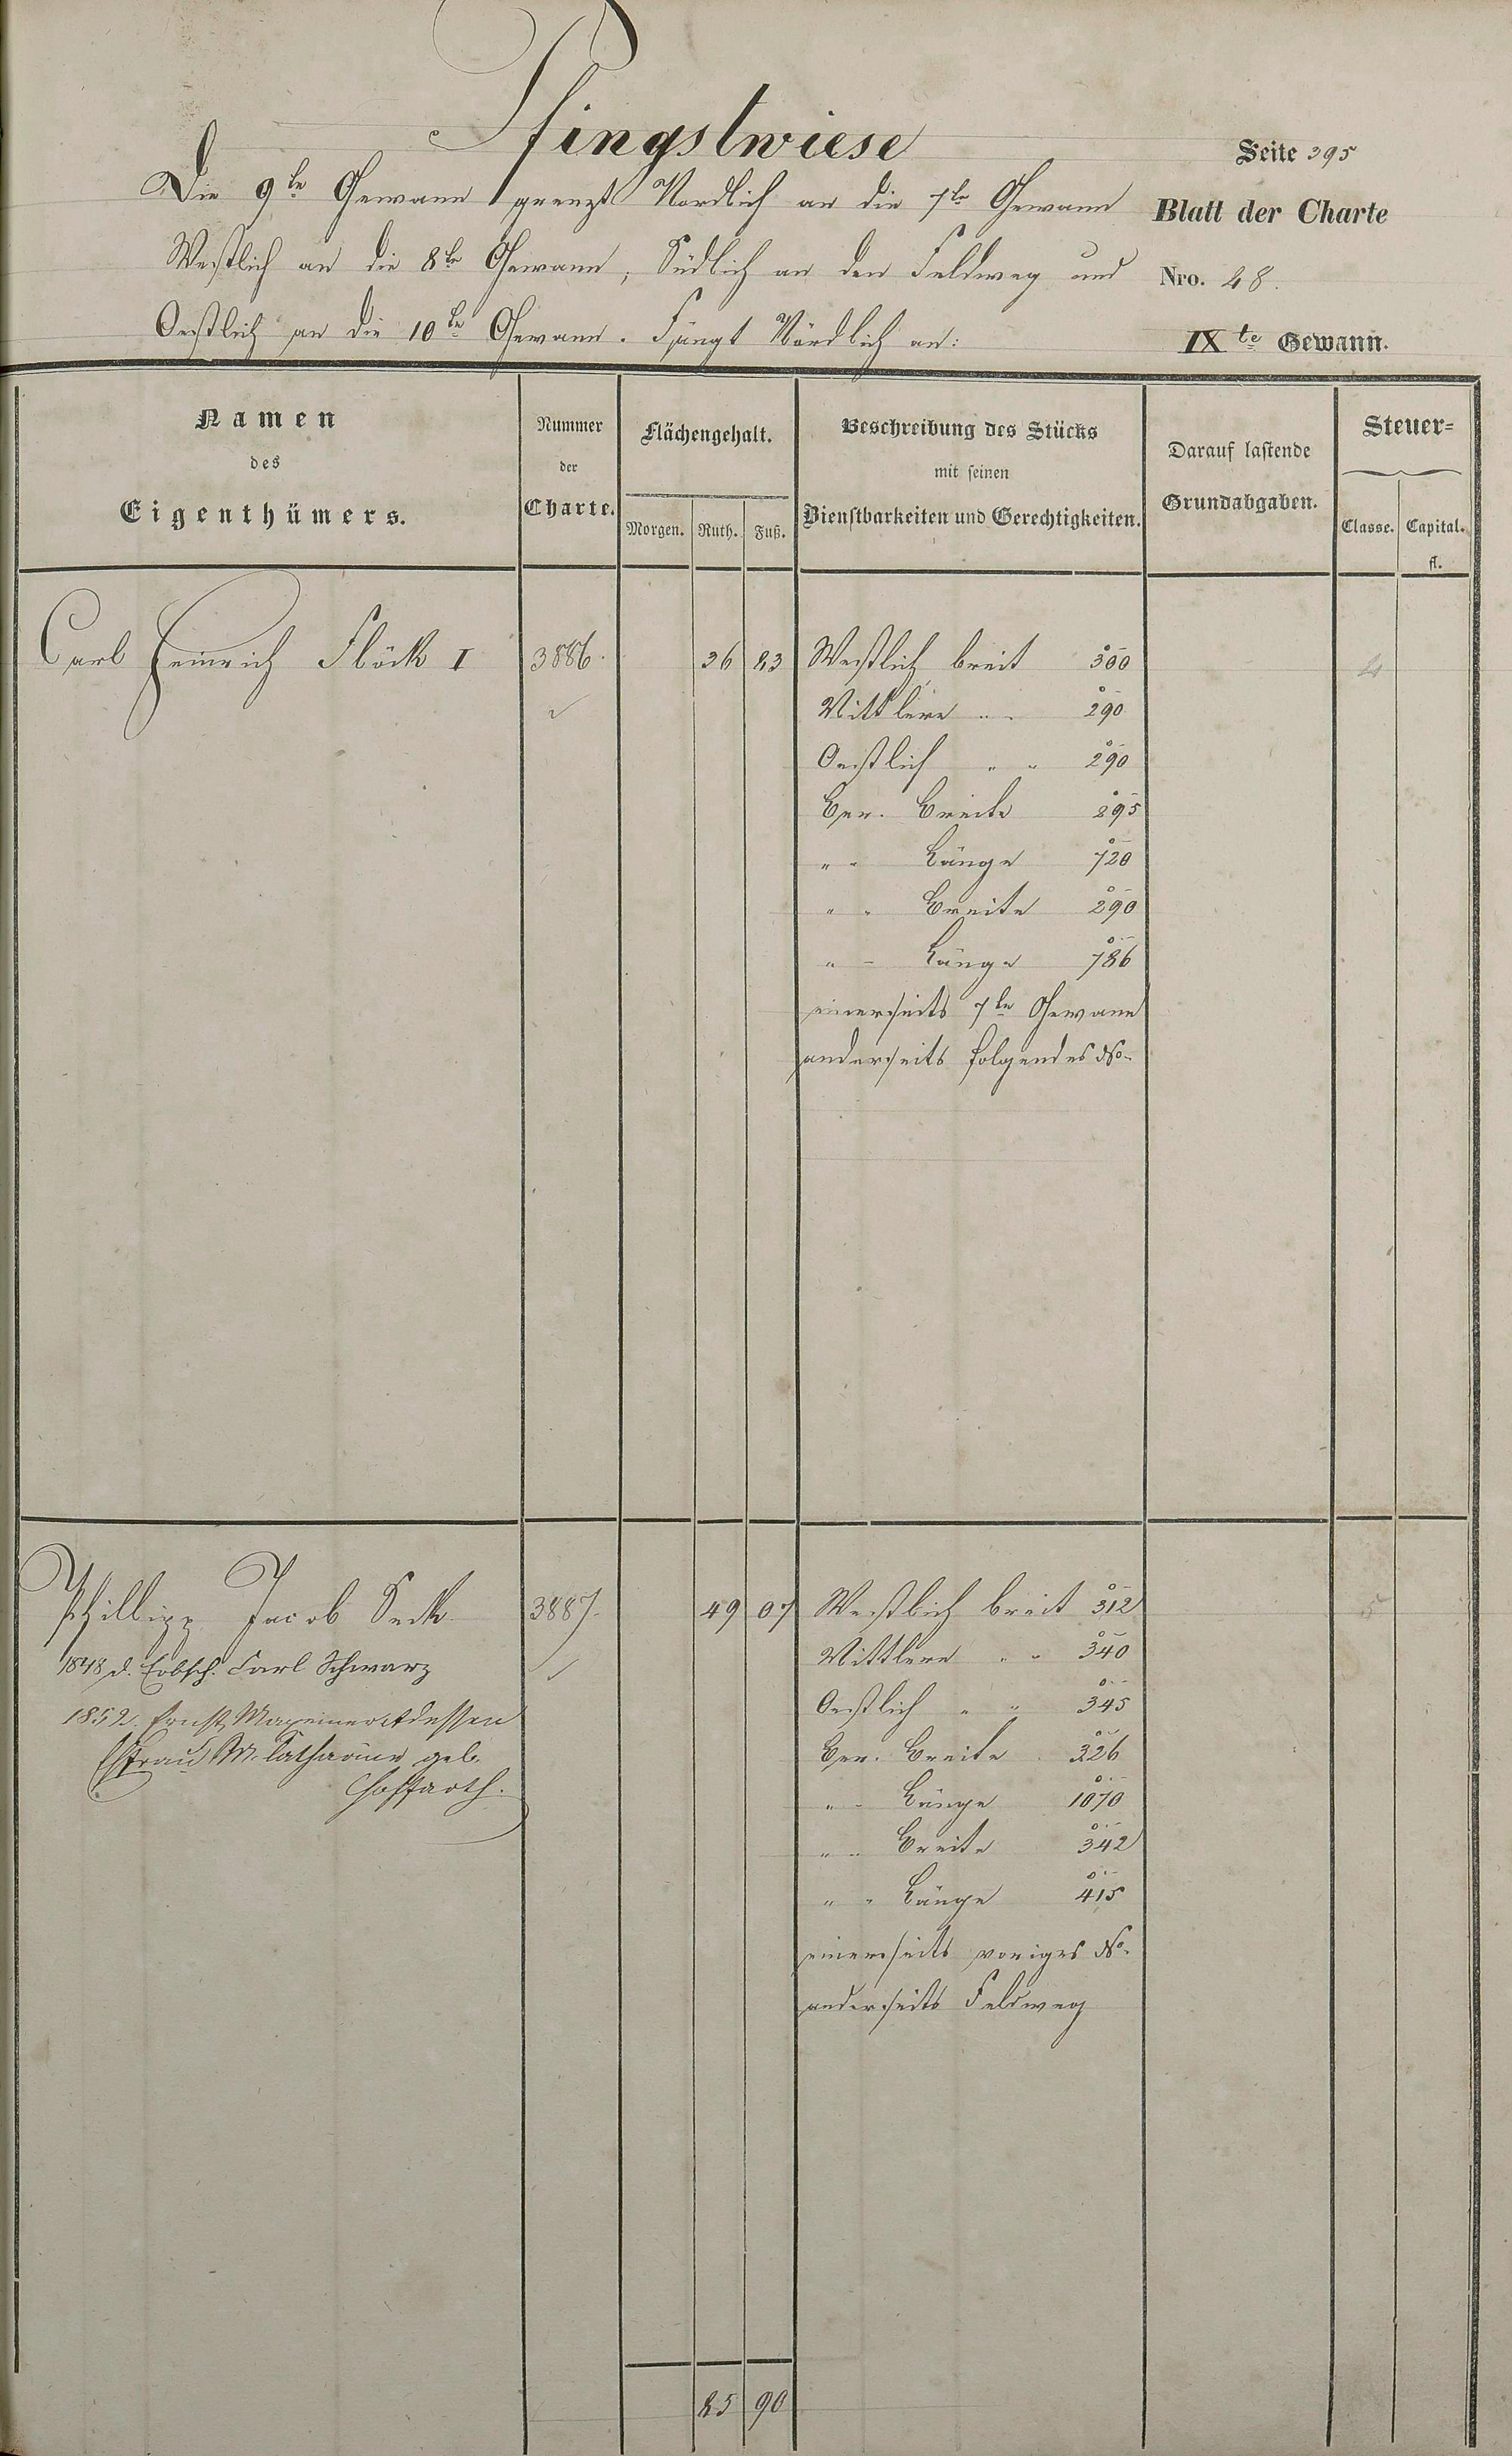 Pfingstwiese
Seite 395
Die 9te Gewann grenzt Nordlich an die 7te Gewann
Blatt der Charte
Westlich an die 8te Gewann, Südlich an den Feldweg und
Nro. 28.
Oestlich an die 10te Gewann. Fängt Nördlich an:
IXte Gewann.
Namen des Eigenthümers.
Nummer der Charte.
Flächengehalt.
Morgen. Ruth. Fuß.
Beschreibung des Stücks mit seinen Dienstbarkeiten und Gerechtigkeiten.
Darauf lastende Grundabgaben.
Steuer=
Classe. Capital. fl.
Carl Heinrich Flöck I 3886. 36 83 Westlich breit 300 4
Mittlere " " 290
Oestlich " " 290
Ber. Breite 295
" " Länge 720
" " Breite 290
" " Länge 526
einerseits 7te Gewann
anderseits folgendes No.
Phillipp Jacob Seck 3887. 49 07 Westlich breit 312 5
1848 d. Erbsch. Carl Schwarz
Mittlere " " 340
1852. Ernst dessen
Oestlich " " 345
Ehfrau M. Catharine geb.
Ber. Breite 326
" " Länge 1070
" " Breite 342
" " Länge 415
einerseits voriges No.
anderseits Feldweg
85 90